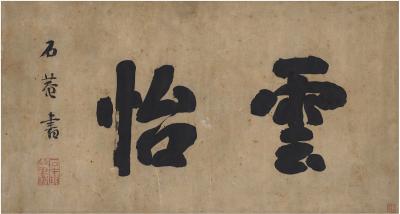 雲怡
石菴書